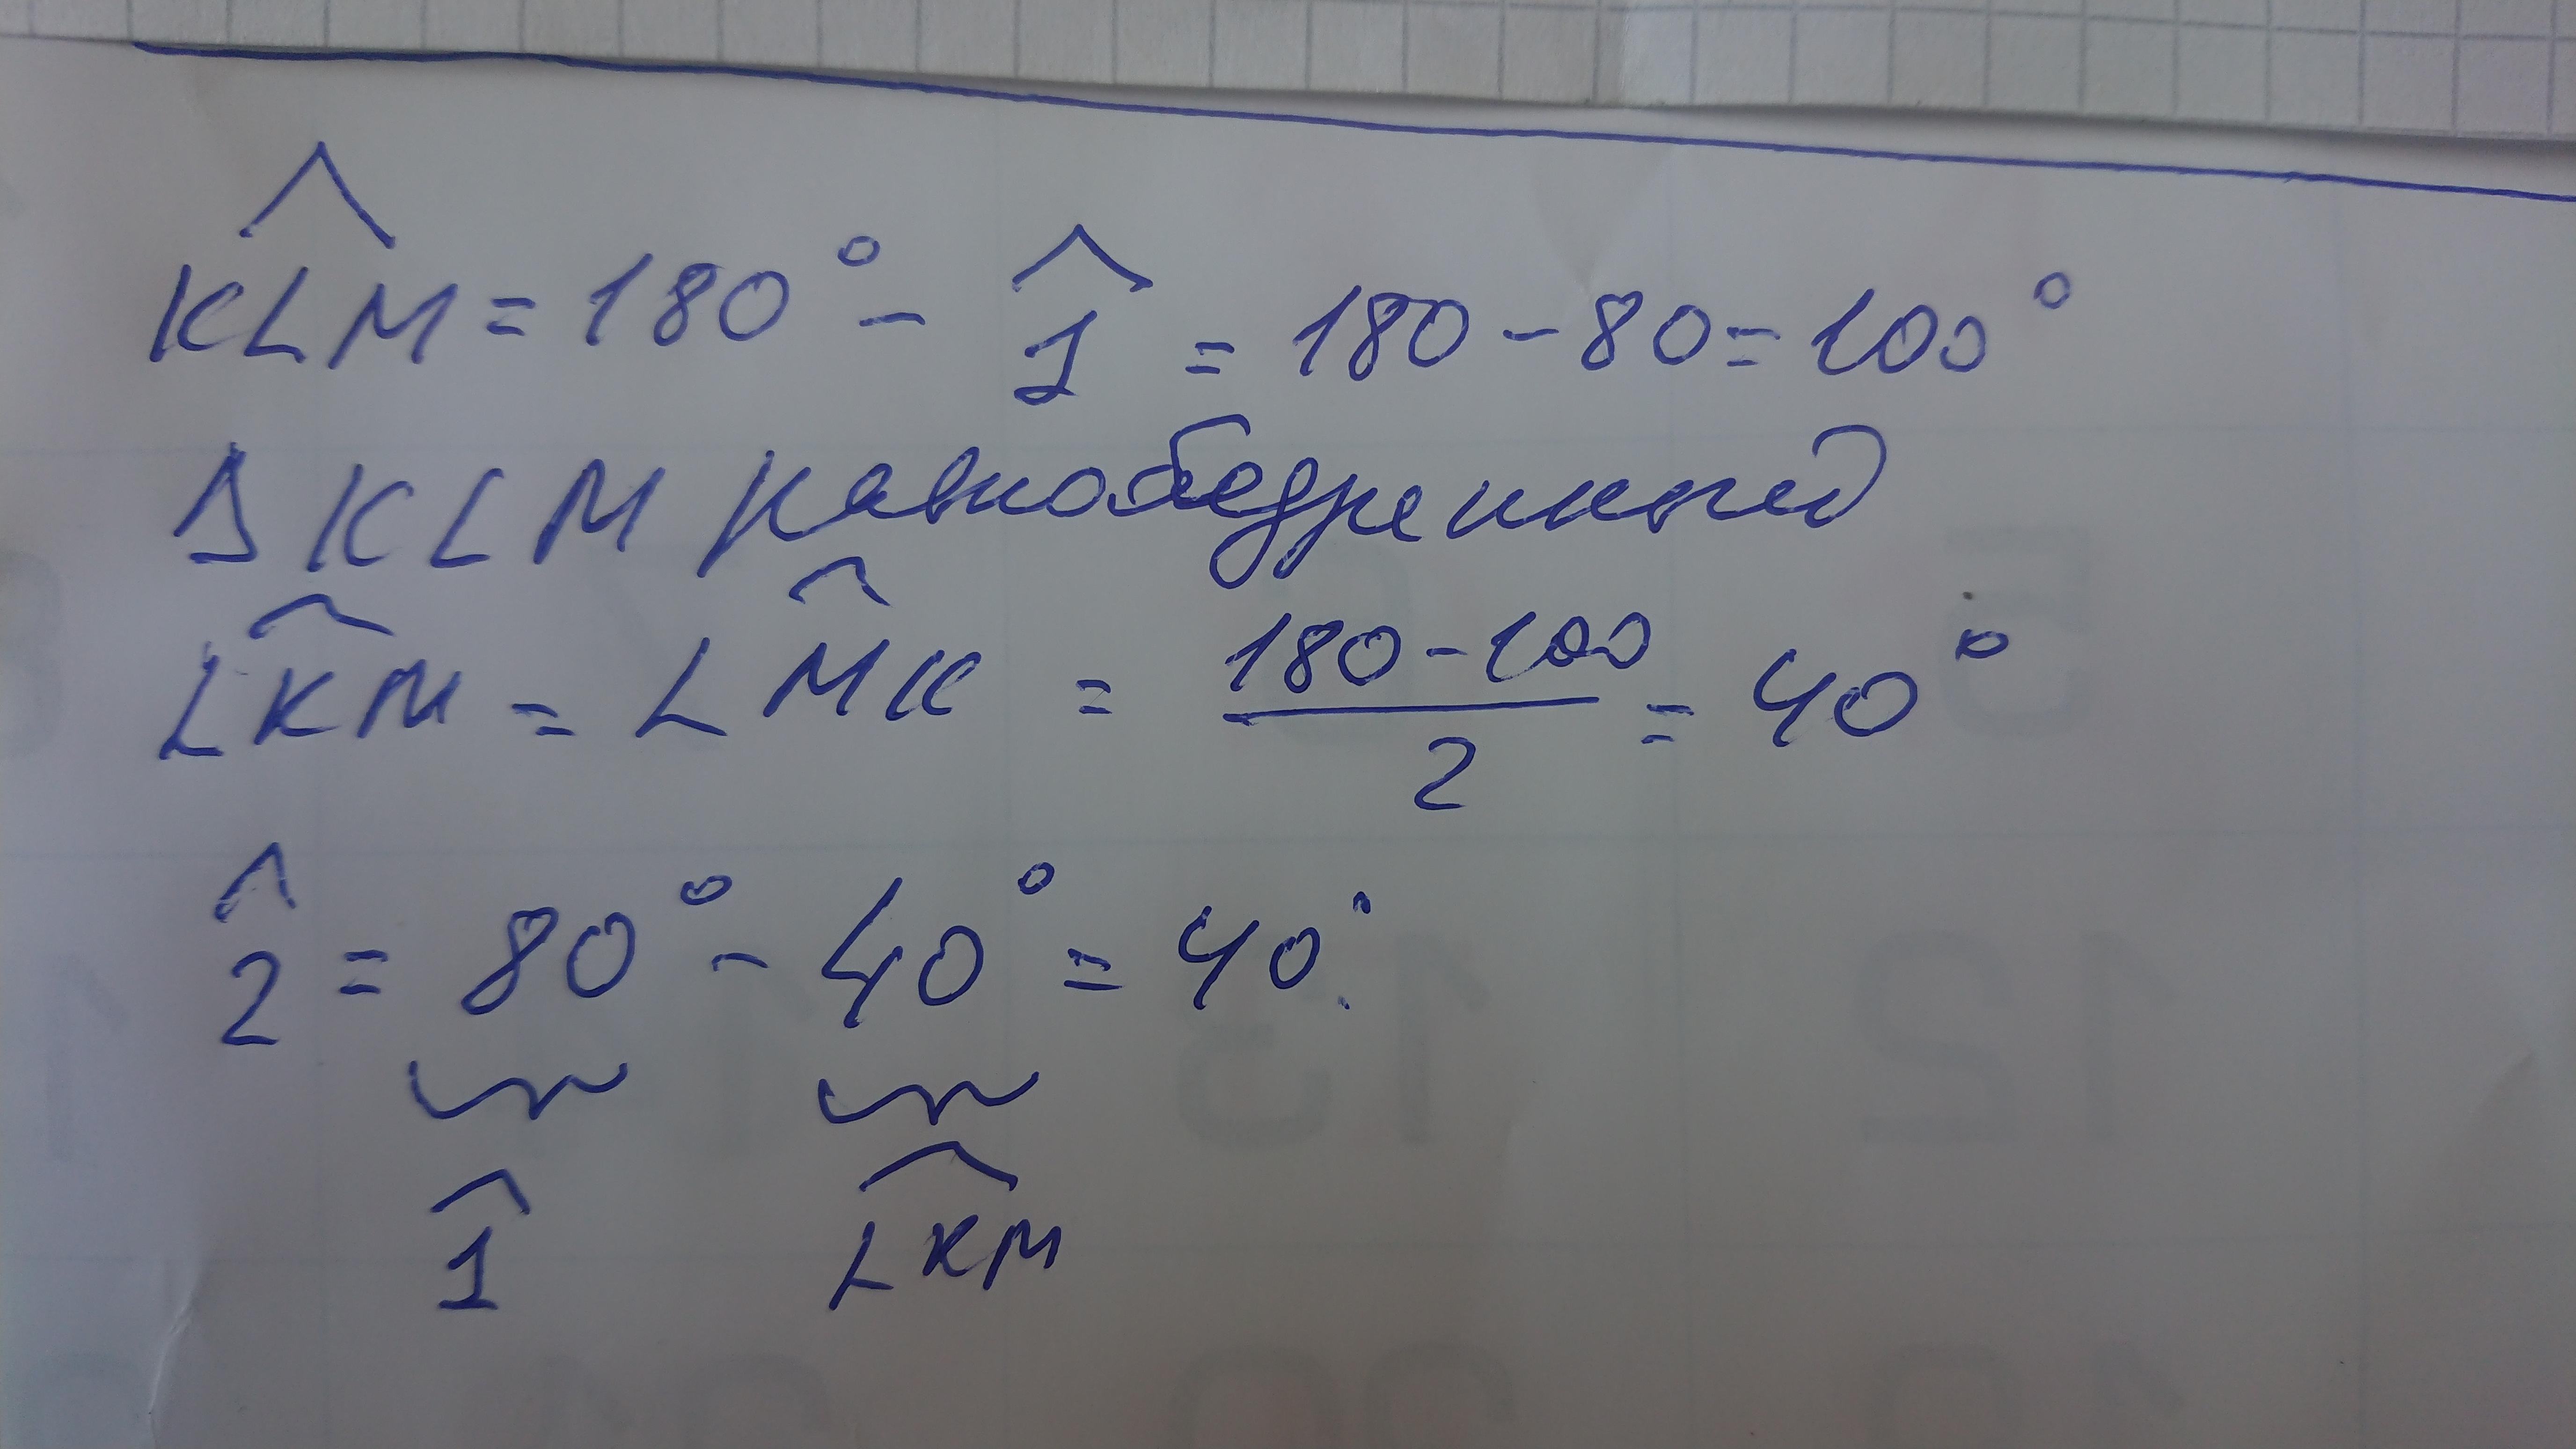 KLM = 180° - 1 = 180 - 80 = 100°
Δ KLM равнобедренный
LKM = LMK = (180 - 100) / 2 = 40°
2 = 80° - 40° = 40°.
1 LKM